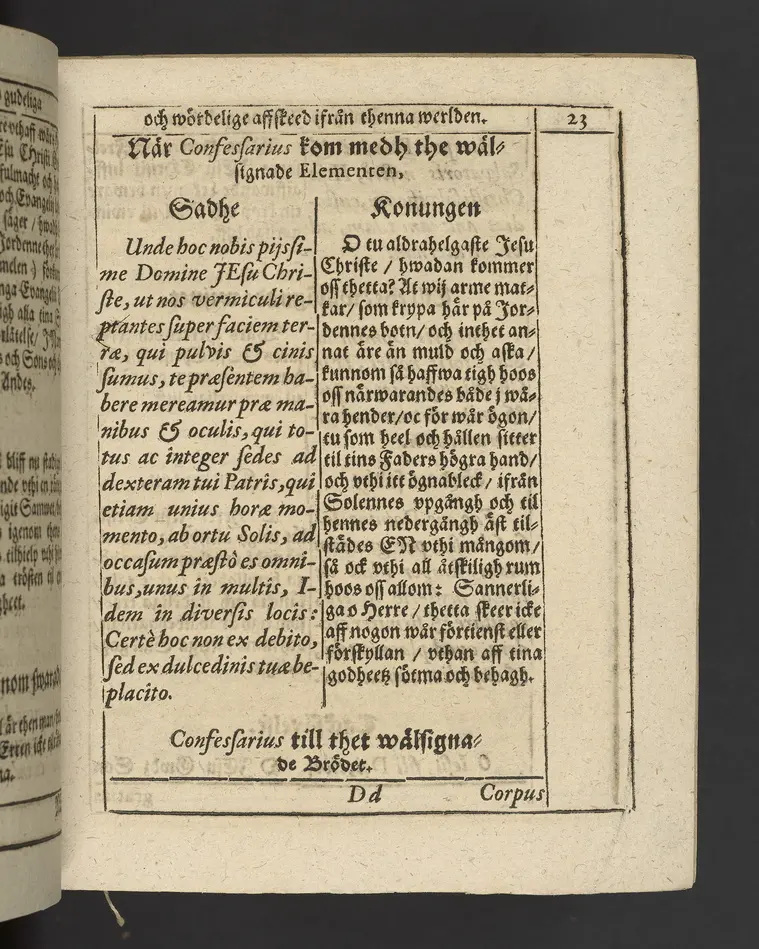 och wördelige affskeed ifrån thenna werlden.
23
När Confessarius kom medh the wäl-
signade Elementen,
Sadhe
Unde hoc nobis pijssi-
me Domine JEsu Chri-
ste, ut nos vermiculi re-
ptantes super faciem ter-
ræ, qui pulvis & cinis
sumus, te præsentem ha-
bere mereamur præ ma-
nibus & oculis, qui to-
tus ac integer sedes ad
dexteram tui Patris, qui
etiam unius horæ mo-
mento, ab ortu Solis, ad
occasum præstò es omni-
bus, unus in multis, I-
dem in diversis locis:
Certè hoc non ex debito,
sed ex dulcedinis tuæ be-
placito.
Konungen
O tu aldrahelgaste Jesu
Christe / hwadan kommer
oss thetta? At wij arme mat-
kar/ som krypa här på Jor-
dennes botn/ och inthet an-
nat äre än muld och aska/
kunnom så haffwa tigh hoos
oss närwarandes både j wå-
ra hender/oc för wår ögon/
tu som heel och hållen sitter
til tins Faders högra hand/
och vthi itt ögnableck/ ifrån
Solennes vpgångh och til
hennes nedergångh äst til-
städes EN vthi mångom/
så ock vthi all åtskiligh rum
hoos oss allom: Sannerli-
ga o Herre / thetta skeer icke
aff nogon wår förtienst eller
förskyllan / vthan aff tina
godheetz sötma och behagh.
Confessarius till thet wälsigna-
de Brödet.
Dd
Corpus
gudeliga
Andes.